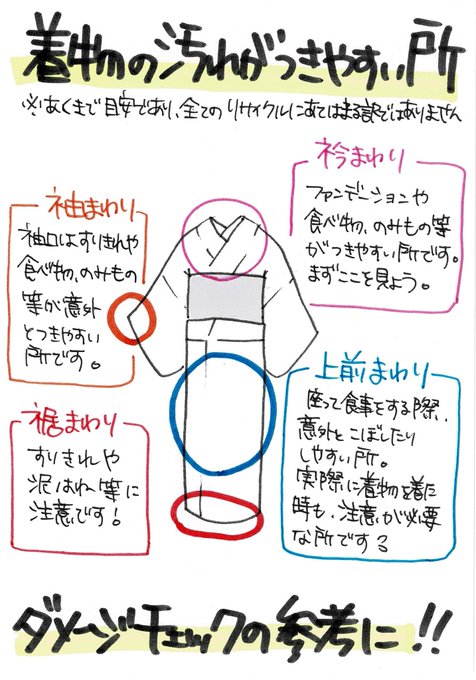 着物の汚れがつきやすい所
※あくまで目安であり、全てのリサイクルにあてはまる訳ではありません
衿まわり
ファンデーションや
食べ物、のみもの等
がつきやすい所です。
まずここを見よう。
袖まわり
袖口はすりきれや
食べ物、のみもの
等が意外
とつきやすい
所です。
上前まわり
座って食事をする際、
意外とこぼしたり
しやすい所。
実際に着物を着た
時も、注意が必要
な所です
裾まわり
すりきれや
泥はね等に
注意です!
ダメージチェックの参考に!!